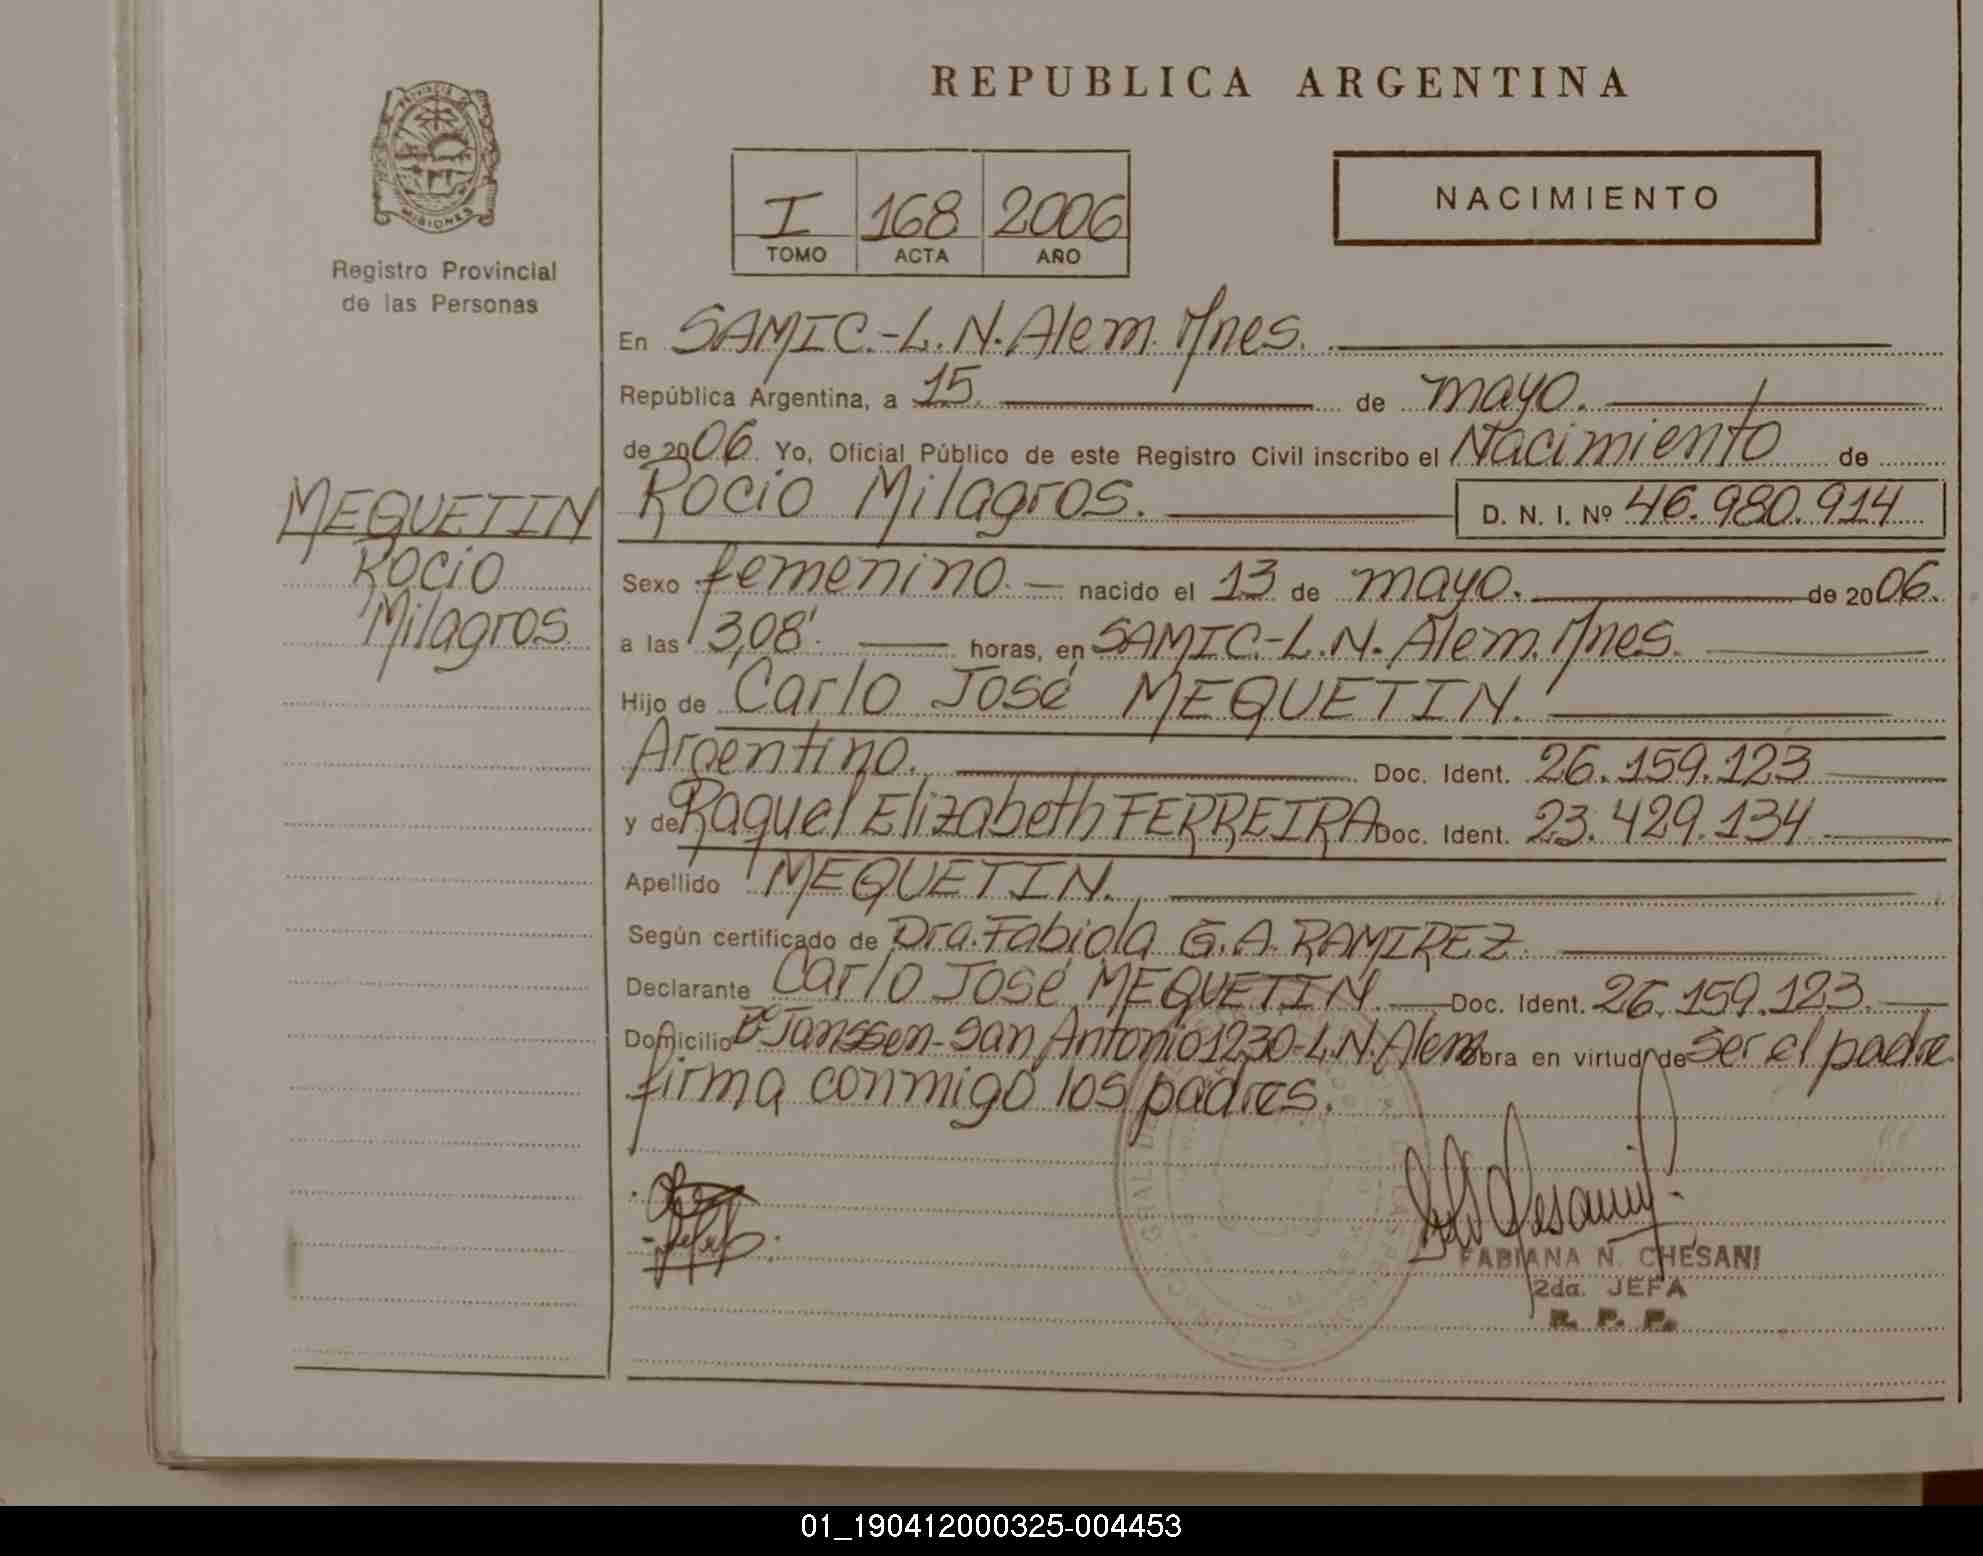 REPUBLICA ARGENTINA
PROVINCIA DE
MISIONES
Registro Provincial
de las Personas
I 168 2006
TOMO ACTA AÑO
NACIMIENTO
En SAMIC.-L.N.Alem.Mnes.
República Argentina, a 15. de mayo.
de 2006. Yo, Oficial Público de este Registro Civil inscribo el Nacimiento de
Rocio Milagros. D. N. I. Nº 46.980.914
MEQUETIN
Rocio
Milagros
Sexo femenino. nacido el 13 de mayo. de 2006.
a las 13,08'. horas, en SAMIC.-L.N.Alem.Mnes.
Hijo de Carlo José MEQUETIN.
Argentino. Doc. Ident. 26.159.123
y de Raquel Elizabeth FERREIRA Doc. Ident. 23.429.134
Apellido MEQUETIN.
Según certificado de Dra.Fabiola G.A.RAMIREZ.
Declarante Carlo José MEQUETIN. Doc. Ident. 26.159.123.
Domicilio Bº Janssen-San Antonio1230-L.N.Alem obra en virtud de Ser el padre
firma conmigo los padres.
FABIANA N. CHESANI
2da. JEFA
R. P. P.
01_190412000325-004453